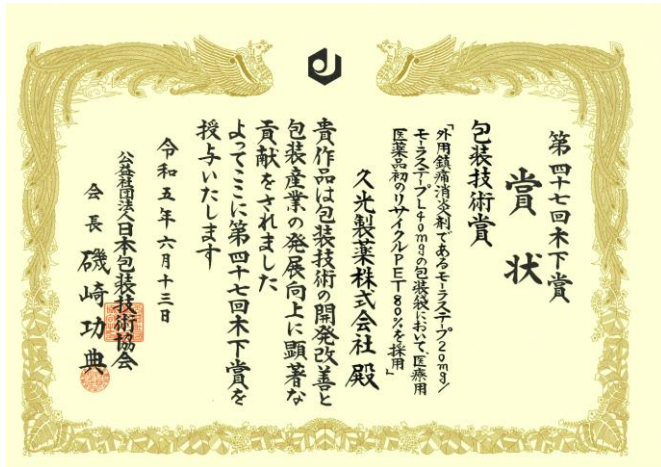 第四十七回木下賞
賞状
包装技術賞
「外用鎮痛消炎剤であるモーラステープ20mg/
モーラステープL40mgの包装袋において、医療用
医薬品初のリサイクルPET80%を採用」
久光製薬株式会社 殿
貴作品は包装技術の開発改善と
包装産業の発展向上に顕著な
貢献をされました
よってここに第四十七回木下賞を
授与いたします
令和五年六月十三日
公益社団法人日本包装技術協会
会長 磯崎功典